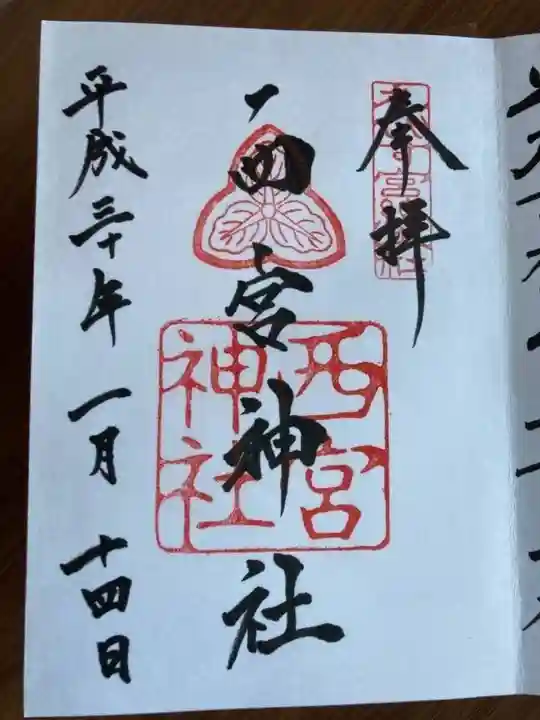 奉拝
西宮神社
西宮
神社
平成三十年 一月 十四日